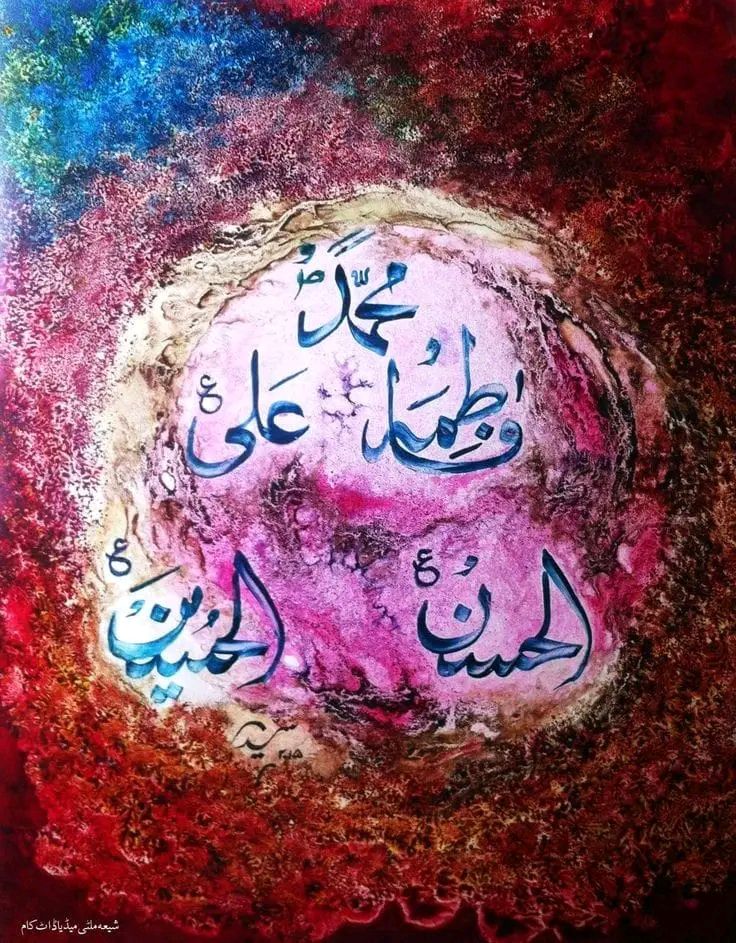 محمدؐ
فاطمہ علیؑ
الحسنؑ الحسینؑ
شیعہ ملٹی میڈیا ڈاٹ کام